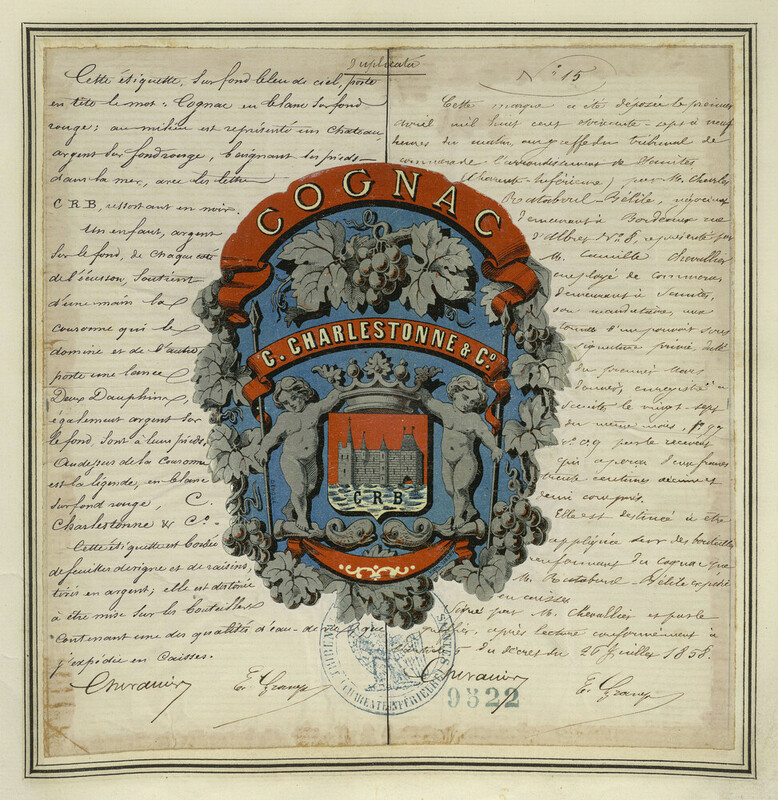 Duplicata
Cette étiquette, sur fond bleu de ciel, porte
en tête le mot: Cognac en blanc sur fond
rouge; au milieu est représenté un Chateau,
argent sur fond rouge, baignant ses pieds
dans la mer, avec les lettres
C R B, ressortant en noir.
Un enfant, argent
sur le fond, de chaque côté
de l'écusson, soutient
d'une main la
couronne qui le
domine et de l'autre
porte une lance
Deux Dauphins
également argent sur
le fond, sont à leurs pieds,
Au dessus de la Couronne
est la légende, en blanc
sur fond rouge, C.
Charlestonne & Co.
Cette étiquette est bordée
de feuilles de vigne et de raisins,
tirés en argent; elle est destinée
à être mise sur les bouteilles
contenant une des qualités d'eau-de-vie que
j'expédie en Caisses.
E. Grange
COGNAC
C. CHARLESTONNE & Co.
C R B
No 15
Cette marque a été déposée le premier
avril mil huit cent soixante-sept à neuf
heures du matin, au greffe du tribunal de
commerce de l'arrondissement de Saintes
(Charente-Inférieure) par M. Charles
négociant
demeurant à Bordeaux rue
d'Albret No 8, représenté par
M. Camille Chevallier
employé de commerce
demeurant à Saintes,
son mandataire, aux
termes d'un pouvoir sous
signature privée, daté
du premier Mars
enregistré à
Saintes le vingt-sept
du même mois, fo 99
par le receveur
qui a perçu deux francs
trente centimes décimes
demi compris.
Elle est destinée à être
appliquée sur des bouteilles
renfermant du cognac que
M. expédie
en caisses.
Signé par M. Chevallier et par le
greffier, après lecture conformément à
du décret du 26 juillet 1858.
E. Grange
TRIBUNAL
SAINTES
CHARENTE INFERIEURE
9322